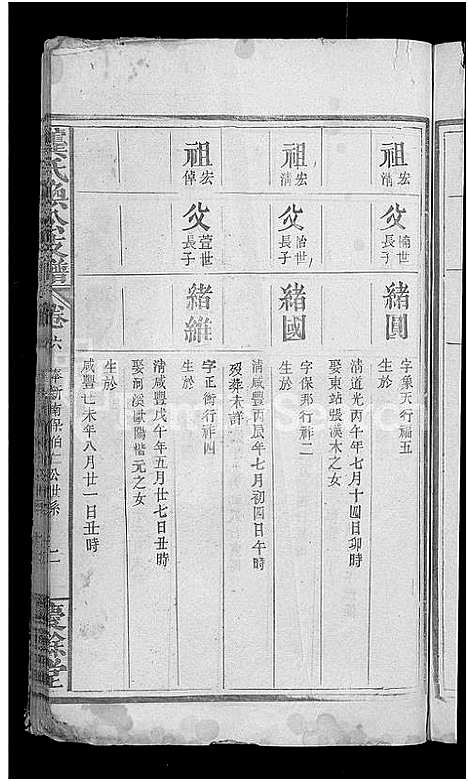 祖 宏清
父 愉世長子
緒圓
字集天行福五
生於
清道光丙午年七月十四日卯時
娶東站張漢木之女
祖 宏清
父 怡世長子
緒國
字保邦行祚二
生於
清咸豐丙辰年七月初四日午時
歿葬未詳
祖 宏倬
父 萱世長子
緒維
字正衡行祚四
生於
清咸豐戊午年五月廿七日丑時
娶河溪歐陽楷元之女
生於
咸豐己未年八月廿一日丑時
龔氏煥公支譜 卷六 奉新南保伯仁公世系 二 慶餘堂